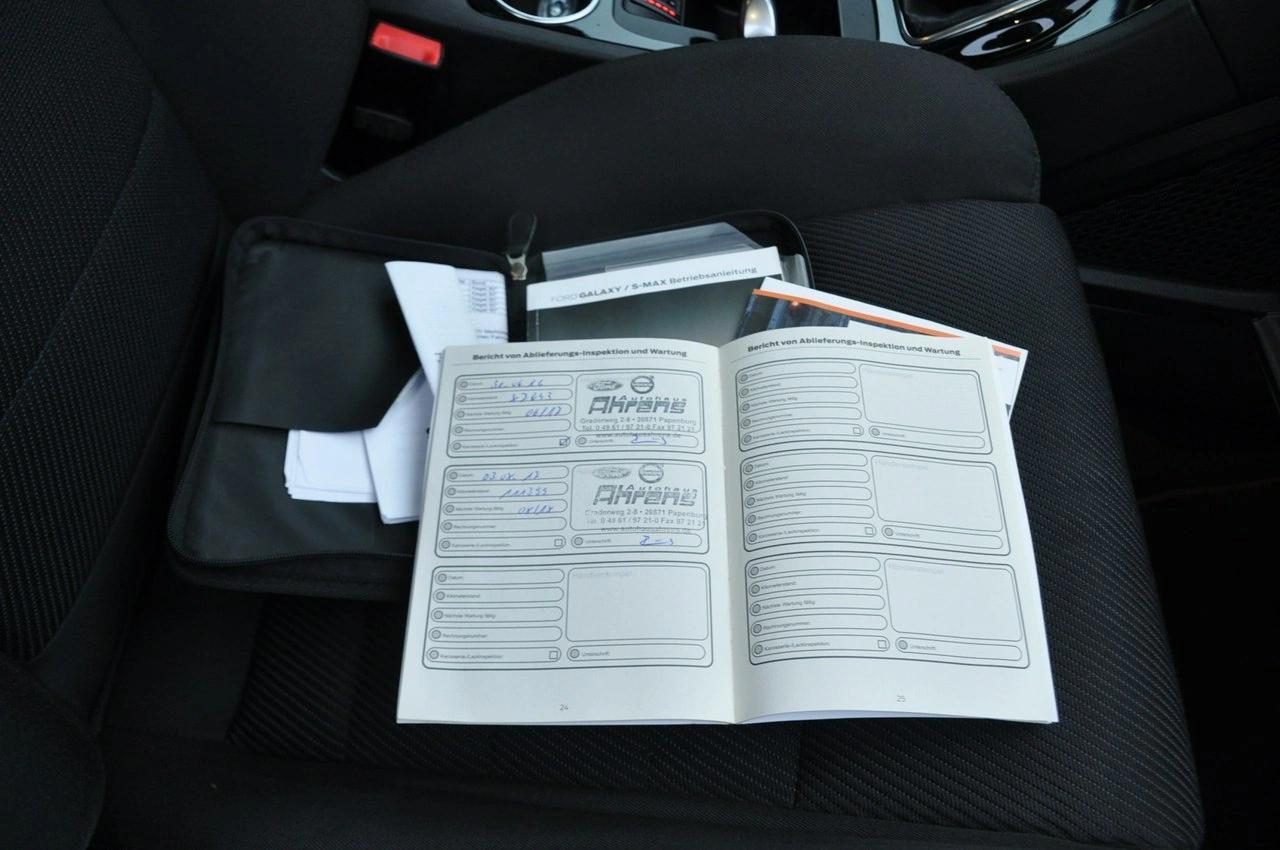 FORD GALAXY / S-MAX Betriebsanleitung
Bericht von Ablieferungs-Inspektion und Wartung
Datum:
Kilometerstand:
Nächste Wartung fällig: 06/17
Rechnungsnummer:
Karosserie-/Lackinspektion:
Autohaus
Ahrens
Graderweg 2-8 • 26871 Papenburg
Tel. 0 49 61 / 97 21-0 Fax 97 21 21
www.autohausahrens.de
Unterschrift:
Datum: 03.08.17
Kilometerstand: 111399
Nächste Wartung fällig: 08/18
Rechnungsnummer:
Karosserie-/Lackinspektion:
Händlerstempel
Autohaus
Ahrens
Graderweg 2-8 • 26871 Papenburg
Tel. 0 49 61 / 97 21-0 Fax 97 21 21
www.autohausahrens.de
Unterschrift:
Datum:
Kilometerstand:
Nächste Wartung fällig:
Rechnungsnummer:
Karosserie-/Lackinspektion:
Händlerstempel
Unterschrift:
24
Bericht von Ablieferungs-Inspektion und Wartung
Datum:
Kilometerstand:
Nächste Wartung fällig:
Rechnungsnummer:
Karosserie-/Lackinspektion:
Händlerstempel
Unterschrift:
Datum:
Kilometerstand:
Nächste Wartung fällig:
Rechnungsnummer:
Karosserie-/Lackinspektion:
Händlerstempel
Unterschrift:
Datum:
Kilometerstand:
Nächste Wartung fällig:
Rechnungsnummer:
Karosserie-/Lackinspektion:
Händlerstempel
Unterschrift:
25